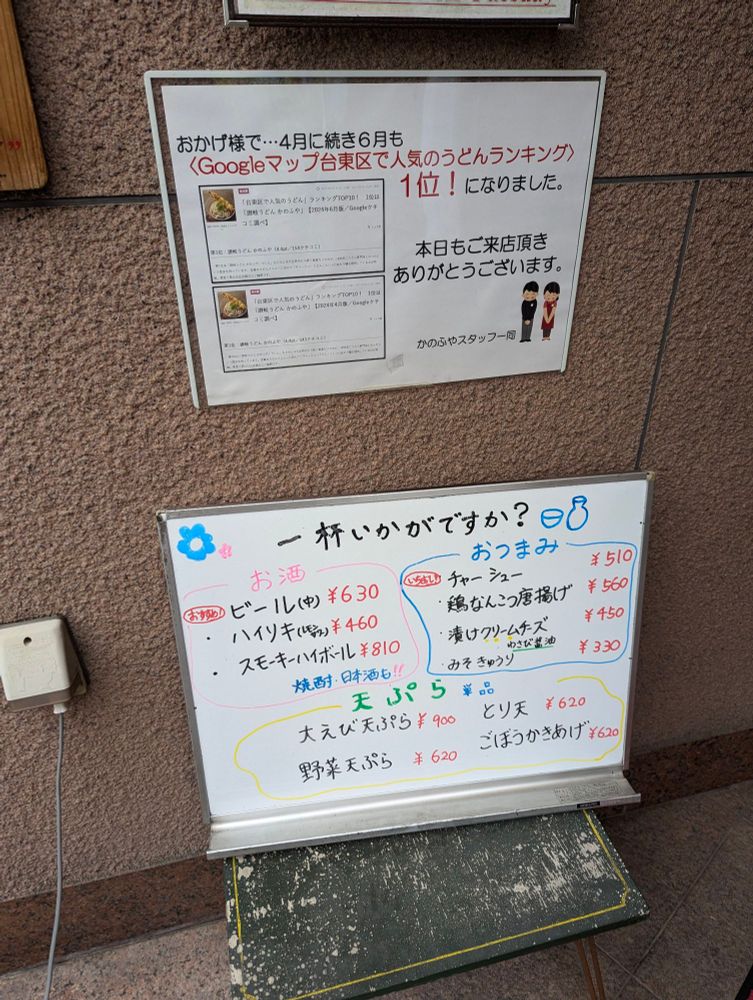 おかげ様で…4月に続き6月も
〈Googleマップ台東区で人気のうどんランキング〉
1位！になりました。
「台東区で人気のうどん」ランキングTOP10！ 1位は
「讃岐うどん かのふや」【2024年6月版／Googleクチ
コミ調べ】
第1位：讃岐うどん かのふや
「台東区で人気のうどん」ランキングTOP10！ 1位は
「讃岐うどん かのふや」【2024年4月版／Googleク
チコミ調べ】
第1位：讃岐うどん かのふや
本日もご来店頂き
ありがとうございます。
かのふやスタッフ一同
一杯いかがですか？
お酒
おすすめ！ ビール(中) ¥630
・ハイソキ ¥460
・スモーキーハイボール ¥810
焼酎・日本酒も!!
おつまみ
チャーシュー ¥510
・鶏なんこつ唐揚げ ¥560
・漬けクリームチーズ ¥450
わさび醤油
・みそきゅうり ¥330
天ぷら 単品
大えび天ぷら ¥900
とり天 ¥620
野菜天ぷら ¥620
ごぼうかきあげ ¥620